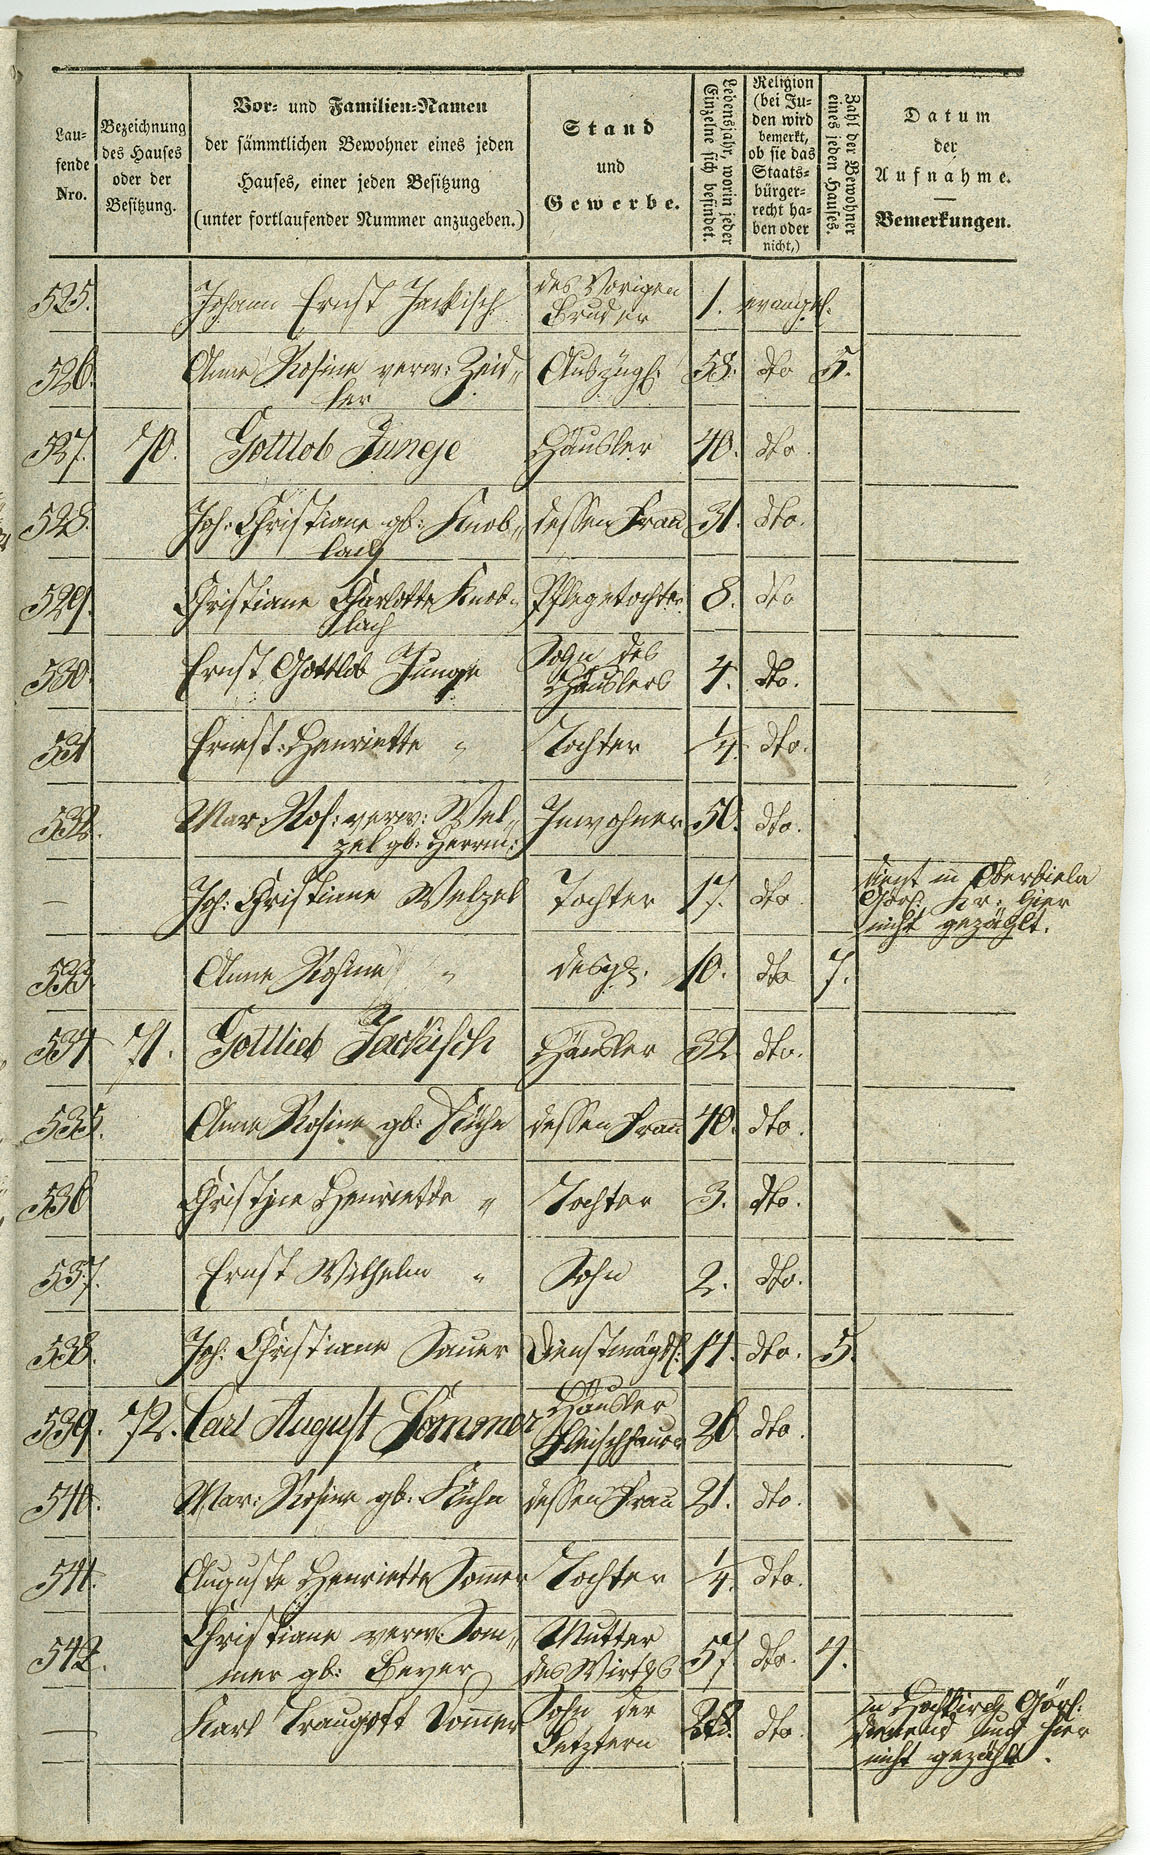 Lau-
fende
Nro.
Bezeichnung
des Hauses
oder der
Besitzung.
Vor- und Familien-Namen
der sämmtlichen Bewohner eines jeden
Hauses, einer jeden Besitzung
(unter fortlaufender Nummer anzugeben.)
Stand
und
Gewerbe.
Lebensjahr, worin jeder
Einzelne sich befindet.
Religion
(bei Ju-
den wird
bemerkt,
ob sie das
Staats-
bürger-
recht ha-
ben oder
nicht,)
Zahl der Bewohner
eines jeden Hauses.
Datum
der
Aufnahme.
Bemerkungen.
525. Johann Ernst Jackisch des Vorigen 1. evangel.
Bruder
526. Anne Rosine verw: Zeid- Auszügl. 58. dto 5.
ler
527. 70. Gottlob Junge Häusler 40. dto.
528. Joh: Christiane gb: Knob- dessen Frau 31. dto.
lach
529. Christiane Charlotte Knob- Pflegetochter 8. dto
lach
530. Ernst Gottlob Junge Sohn des 4. dto.
Häuslers
531 Ernest: Henriette " Tochter 1/4. dto.
532. Mar: Ros: verw: Wel- Inwohner 50. dto.
zel gb: Herrm:
— Joh: Christiane Welzel Tochter 17. dto. dient in Oberbiela
Görl: Kr: hier
nicht gezählt.
533. Anne Rosine " desgl. 10. dto 7.
534 71. Gottlieb Jackisch Häusler 32 dto.
535. Anne Rosine gb: Kühn dessen Frau 40. dto.
536 Christine Henriette " Tochter 3. dto.
537. Ernst Wilhelm " Sohn 2. dto.
538. Joh: Christiane Sauer Dienstmägdl: 14. dto. 5.
539. 72. Carl August Sommer Häusler 26 dto.
Fleischhauer
540. Mar: Rosine gb: Kühn dessen Frau 21. dto.
541. Auguste Henriette Sommer Tochter 1/4. dto.
542. Christiane verw: Som- Mutter 57. dto. 4.
mer gb: Beyer des Wirths
— Karl Traugott Sommer Sohn der dto. in Hochkirch Görl:
Letztern dienend und hier
nicht gezählt.